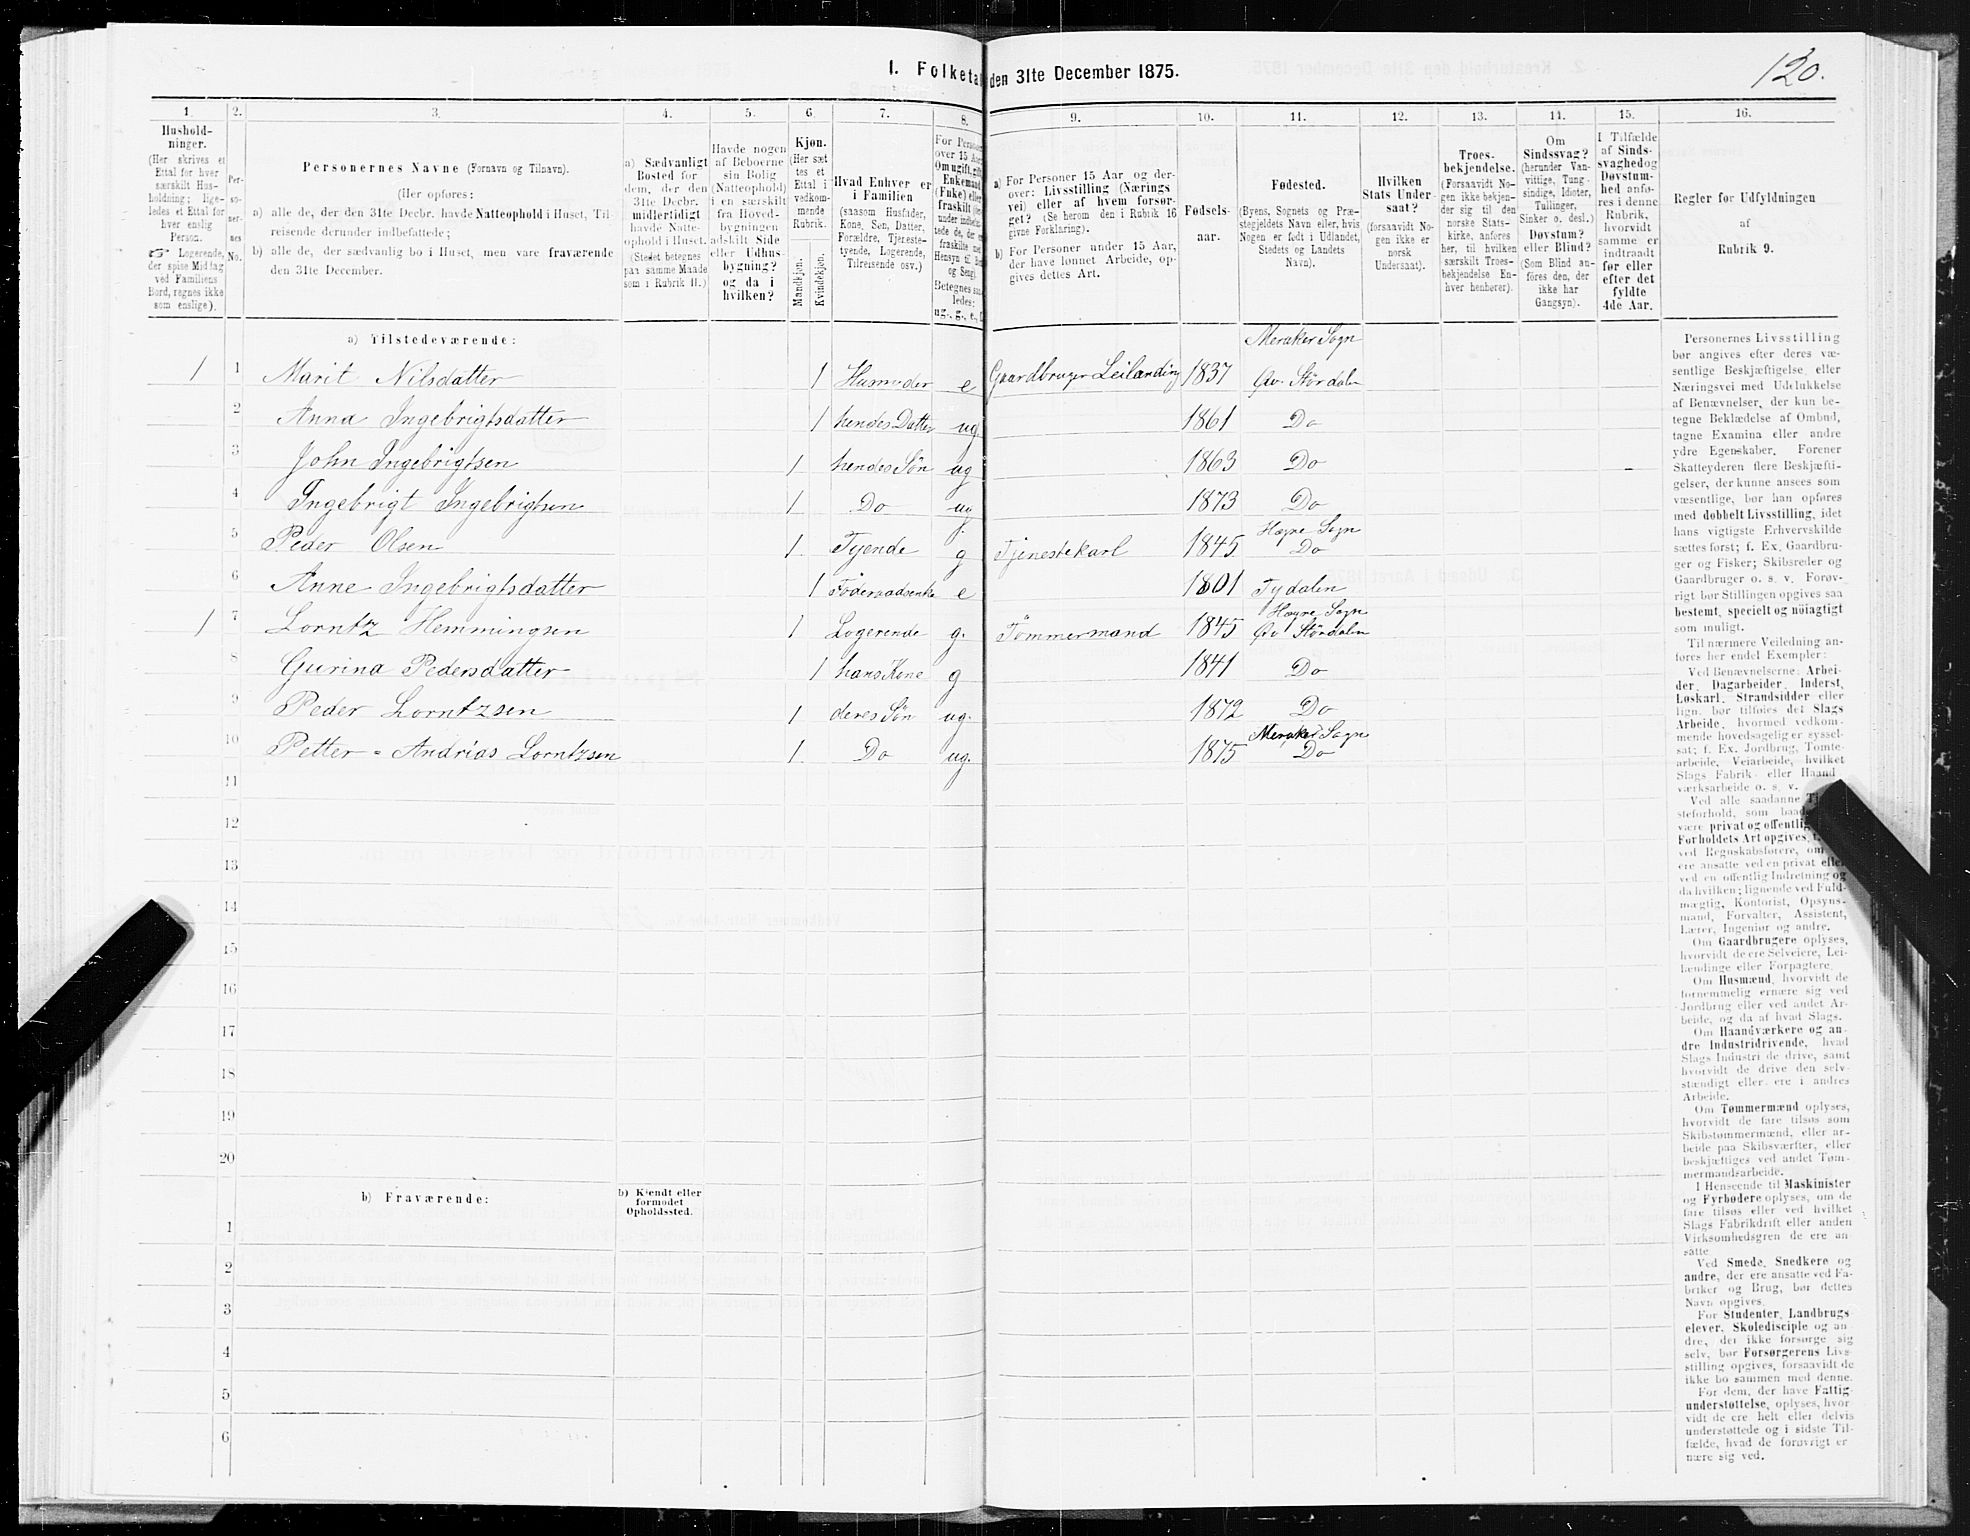 120.
I. Folketal den 31te December 1875.
1. 2. 3. 4. 5. 6. 7. 8. 9. 10. 11. 12. 13. 14. 15. 16.
Hushold-
ninger.
(Her skrives et
Ettal for hver
særskilt Hus-
holdning; lige-
ledes et Ettal for
hver enslig
Person.
☞ Logerende,
der spise Middag
ved Familiens
Bord, regnes ikke
som enslige).
Per-
so-
ner-
nes
No.
Personernes Navne (Fornavn og Tilnavn).
(Her opføres:
a) alle de, der den 31te Decbr. havde Natteophold i Huset, Til-
reisende derunder indbefattede;
b) alle de, der sædvanlig bo i Huset, men vare fraværende
den 31te December.
a) Sædvanligt
Bosted for
dem, der den
31te Decbr.
midlertidigt
havde Natte-
ophold i Huset.
(Stedet betegnes
paa samme Maade
som i Rubrik 11.)
Havde nogen
af Beboerne
sin Bolig
(Natteophold)
i en særskilt
fra Hoved-
bygningen
adskilt Side
eller Udhus-
bygning?
og da i
hvilken?
Kjøn.
(Her sæt
tes et
Ettal i
vedkom-
mende
Rubrik.
Mandkjøn.
Kvindekjøn.
Hvad Enhver er
i Familien
(saasom Husfader,
Kone, Søn, Datter,
Forældre, Tjeneste-
tyende, Logerende,
Tilreisende osv.)
For Personer
over 15 Aar:
Om ugift, gift,
Enkemand
(Enke) eller
fraskilt
Betegnes saa-
ledes:
ug., g., e., f.
a) For Personer 15 Aar og der-
over: Livsstilling (Nærings
vei) eller af hvem forsør-
get? (Se herom den i Rubrik 16
givne Forklaring).
b) For Personer under 15 Aar,
der have lønnet Arbeide, op-
gives dettes Art.
Fødsels-
aar.
Fødested.
(Byens, Sognets og Præ-
stegjeldets Navn eller, hvis
Nogen er født i Udlandet,
Stedets og Landets
Navn).
Hvilken
Stats Under-
saat?
(forsaavidt No-
gen ikke er
norsk
Undersaat).
Troes-
bekjendelse.
(Forsaavidt No-
gen ikke bekjen-
der sig til den
norske Stats-
kirke, anføres
her, til hvilken
særskilt Troes-
bekjendelse En-
hver henhører).
Om
Sindssvag?
(herunder Van-
vittige, Tung-
sindige, Idioter,
Tullinger,
Sinker o. desl.)
Døvstum?
eller Blind?
(Som Blind an-
føres den, der
ikke har
Gangsyn).
I Tilfælde
af Sinds-
svaghed og
Døvstum-
hed anfø-
res i denne
Rubrik,
hvorvidt
samme er
indtraadt
før eller
efter det
fyldte
4de Aar.
Regler for Udfyldningen
af
Rubrik 9.
a) Tilstedeværende:
Meraker Sogn
1 1 Marit Nilsdatter 1 Husmoder e Gaardbruger Leilænding 1837 Øv. Stördalen
2 Anna Ingebrigtsdatter 1 hendes Datter ug 1861 Do
3 John Ingebrigtsen 1 hendes Søn ug 1863 Do
4 Ingebrigt Ingebrigtsen 1 Do ug. 1873 Do
Hegre Sogn
5 Peder Olsen 1 Tyende g Tjenestekarl 1845 Do
6 Anne Ingebrigtsdatter 1 Föderaadsenke e 1801 Tydalen
Hegre Sogn
1 7 Lorntz Hemmingsen 1 Logerende g. Tömmermand 1845 Öv Stördalen
8 Gurina Pedersdatter 1 hans Kone g 1841 Do
9 Peder Lorntzsen 1 deres Sön ug. 1872 Do
Meraker Sogn
10 Petter - Andrias Lorntzsen 1 Do ug. 1875 Do
11
12
13
14
15
16
17
18
19
20
b) Fraværende:
b) Kjendt eller
formodet
Opholdssted.
1
2
3
4
5
6
Personernes Livsstilling
bør angives efter deres væ-
sentlige Beskjæftigelse eller
Næringsvei med Udelukkelse
af Benævnelser, der kun be-
tegne Beklædelse af Ombud,
tagne Examina eller andre
ydre Egenskaber. Forener
Skatteyderen flere Beskjæfti-
gelser, der kunne ansees som
væsentlige, bør han opføres
med dobbelt Livsstilling, idet
hans vigtigste Erhvervskilde
sættes først; f. Ex. Gaardbru-
ger og Fisker; Skibsreder og
Gaardbruger o. s. v. Forøv-
rigt bør Stillingen opgives saa
bestemt, specielt og nöiagtigt
som muligt.
Til nærmere Veiledning an-
føres her endel Exempler:
Ved Benævnelserne: Arbei-
der, Dagarbeider, Inderst,
Løskarl, Strandsidder eller
lign. bør tilføies det Slags
Arbeide, hvormed vedkom-
mende hovedsagelig er syssel-
sat; f. Ex. Jordbrug, Tomte-
arbeide, Veiarbeide, hvilket
Slags Fabrik- eller Haand-
værksarbeide o. s. v.
Ved alle saadanne
steforhold, som
være privat og offentlig
Forholdets Art opgives,
ved Regnskabsførere, om
ere ansatte ved en privat eller
ved en offentlig Indretning og
da hvilken; lignende ved Fuld-
mægtig, Kontorist, Opsyns-
mand, Forvalter, Assistent,
Lærer, Ingeniør og andre.
Om Gaardbrugere oplyses,
hvorvidt de ere Selveiere, Lei-
lændinge eller Forpagtere.
Om Husmænd, hvorvidt de
fornemmelig ernære sig ved
Jordbrug eller ved andet Ar-
beide, og da af hvad Slags.
Om Haandværkere og an-
dre Industridrivende, hvad
Slags Industri de drive, samt
hvorvidt de drive den selv-
stændigt eller ere i andres
Arbeide.
Om Tømmermænd oplyses,
hvorvidt de fare tilsøs som
Skibstømmermænd, eller ar-
beide paa Skibsværfter, eller
beskjæftiges ved andet Tøm-
mermandsarbeide.
I Henseende til Maskinister
og Fyrbødere oplyses, om de
fare tilsøs eller ved hvilket
Slags Fabrikdrift eller anden
Virksomhedsgren de ere an-
satte
Ved Smede, Snedkere og
andre, der ere ansatte ved Fa-
briker og Brug, bør dettes
Navn opgives.
For Studenter, Landbrugs
elever, Skoledisciple og an-
dre, der ikke forsørge sig
selv, bør Forsørgerens Livs-
stilling opgives, forsaavidt de
ikke bo sammen med denne.
For dem, der have Fattig-
understøttelse, oplyses, hvor
vidt de ere helt eller delvis
understøttede og i sidste Til-
fælde, hvad de forøvrigt er
nære sig ved.